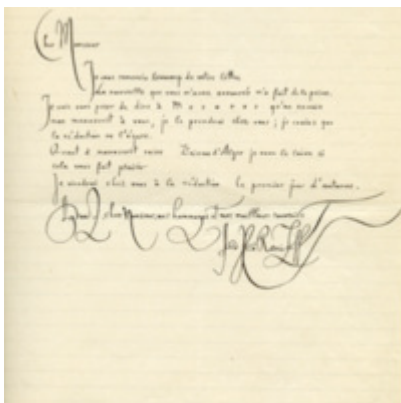 Cher Monsieur
Je vous remercie beaucoup de votre lettre.
La nouvelle que vous m'avez annoncé m'a fait de la peine.
Je vais vous prier de dire à M qu'on envoie
mon manuscrit à vous, je le prendrai chez vous ; je crains que
la rédaction ne l'égare.
Quant à manuscrit je vous le laisse si
cela vous fait plaisir
Je viendrai chez vous à la rédaction le premier jour d'automne.
cher Monsieur, mes hommages et mes meilleurs souvenirs